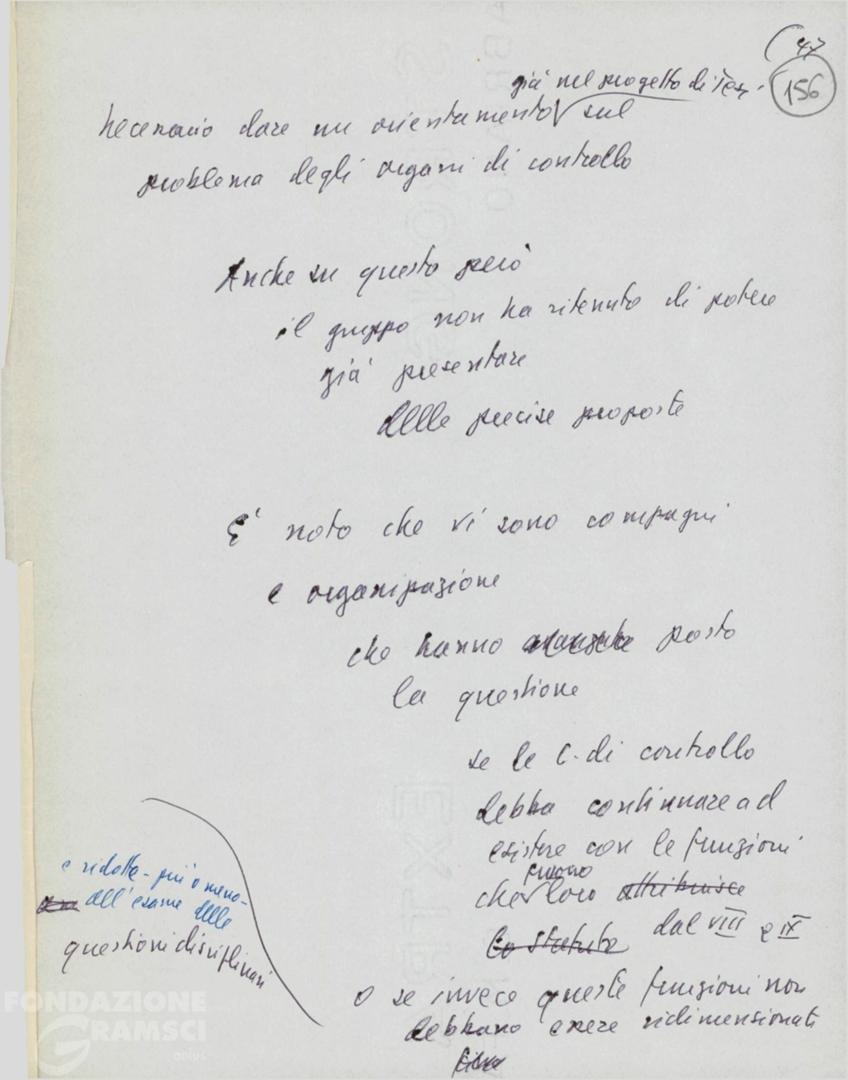 (47
156
già nel progetto di Tesi
necessario dare un orientamento sul
problema degli organi di controllo
Anche su questo però
il gruppo non ha ritenuto di potere
già presentare
delle precise proposte
E' noto che vi sono compagni
e organizzazione
che hanno posto
la questione
se le C. di controllo
debba continuare ad
esistere con le funzioni
furono
che loro attribuisce
lo Statuto dal VIII e IX
o se invece queste funzioni non
debbano essere ridimensionati
e ridotte - più o meno -
all'esame delle
questioni disciplinari
FONDAZIONE
GRAMSCI
onlus